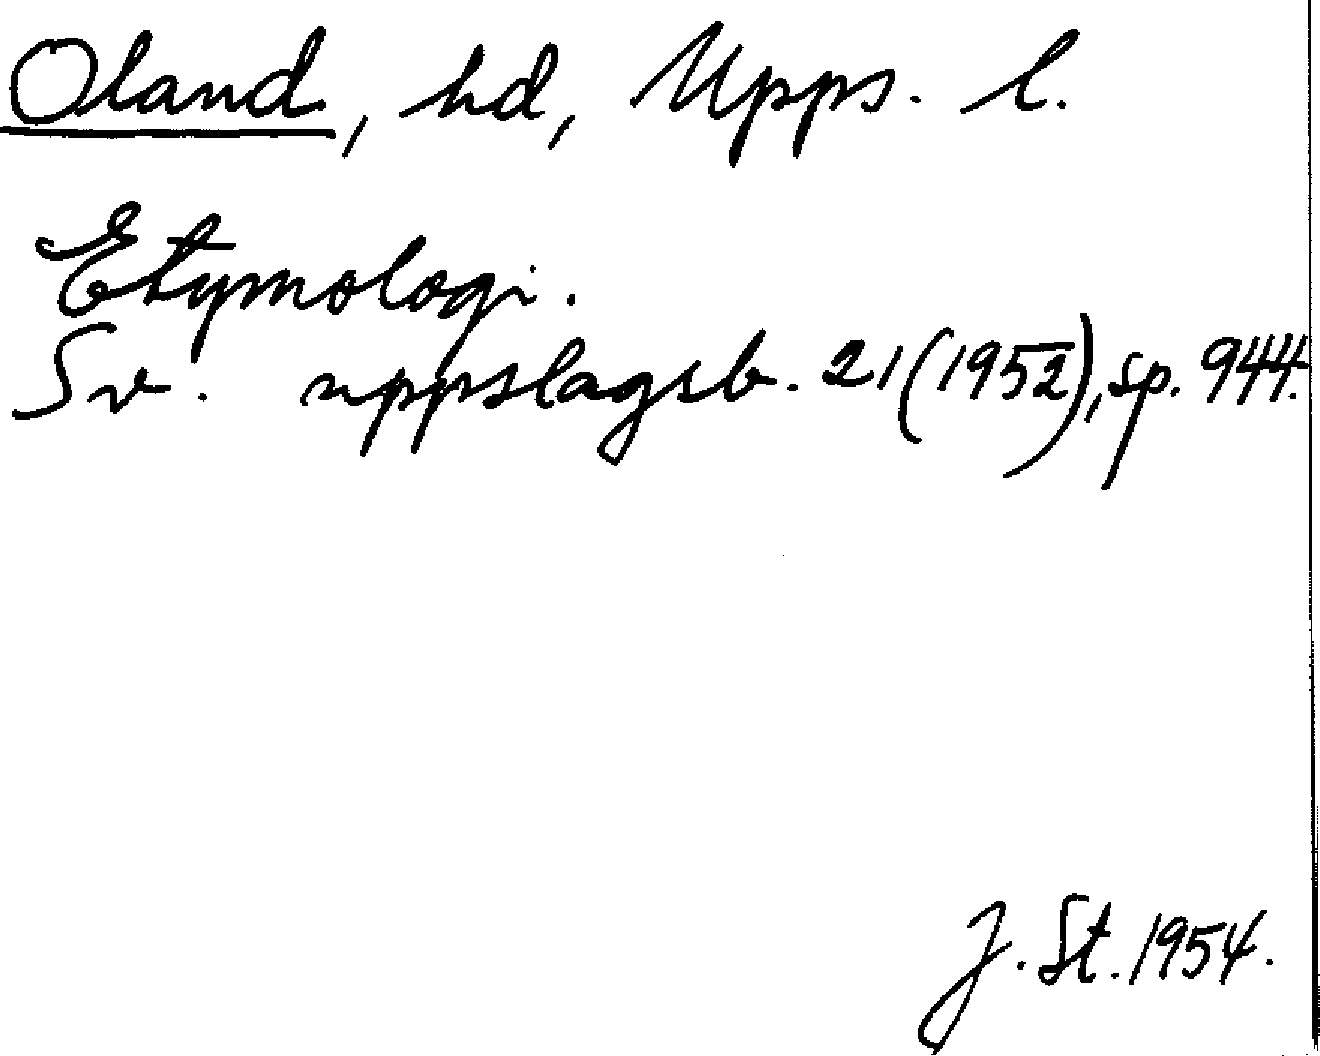 Oland, hd, Upps. l.
Etymologi.
Sv. uppslagsb. 21 (1952), sp. 944.
J. St. 1954.